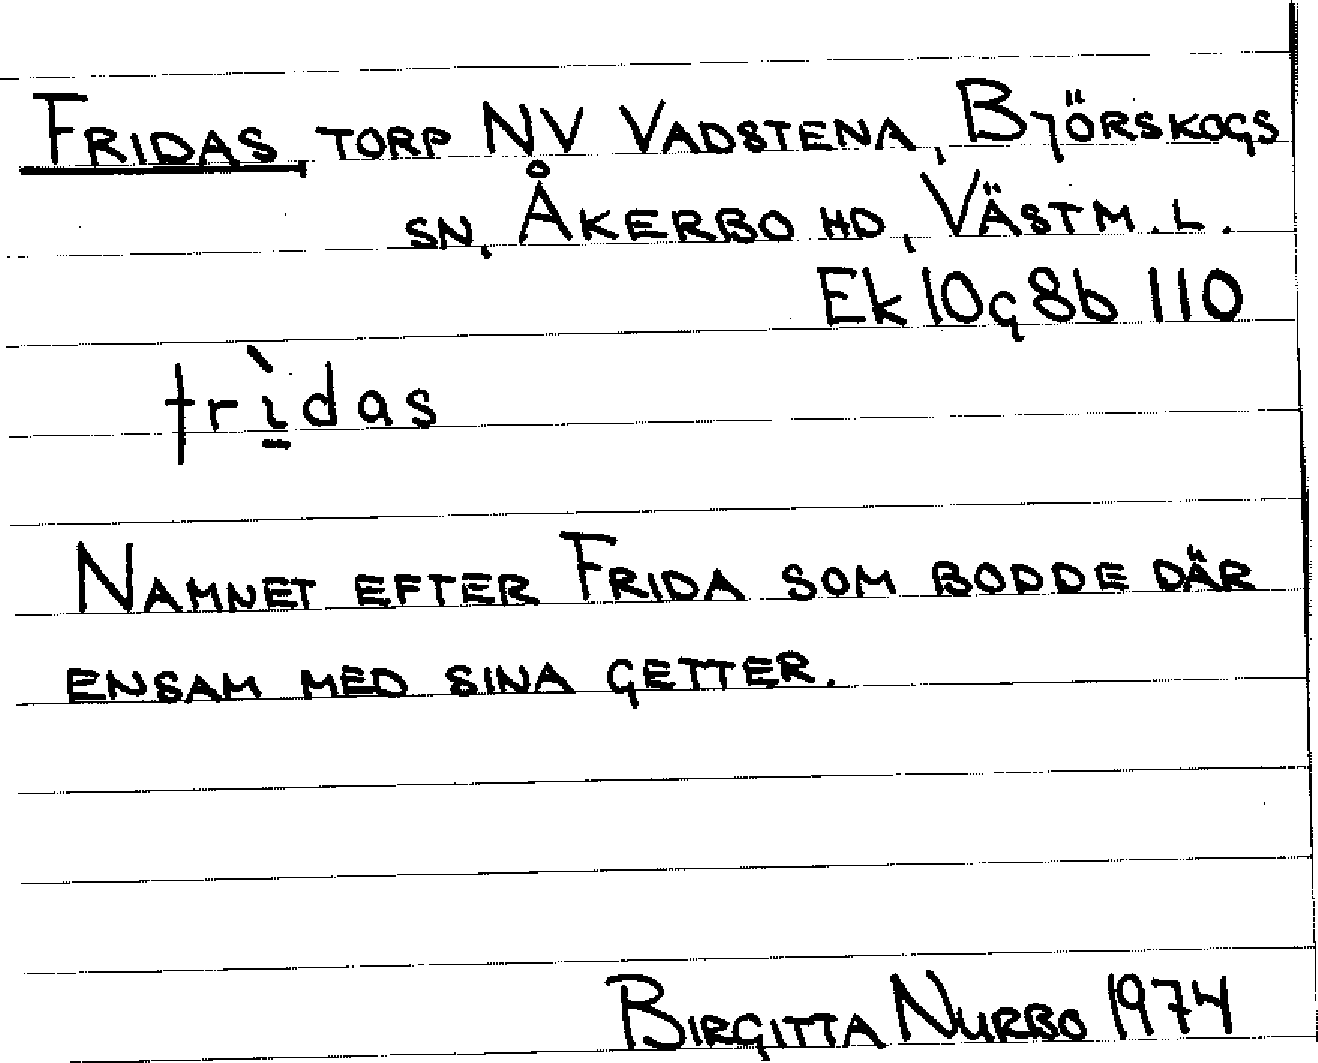 FRIDAS, TORP NV VADSTENA, BJÖRSKOGS
SN, ÅKERBO HD, VÄSTM. L.
Ek 10g 8b 110
frìdas
NAMNET EFTER FRIDA SOM BODDE DÄR
ENSAM MED SINA GETTER.
BIRGITTA NURBO 1974